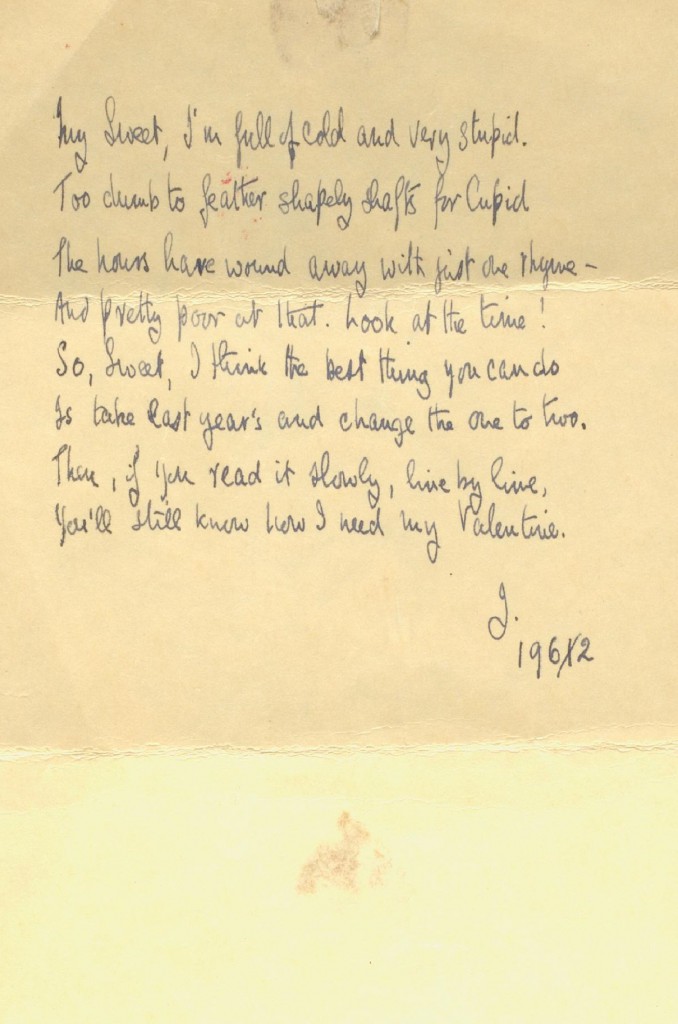 My Sweet, I'm full of cold and very stupid.
Too dumb to feather shapely shafts for Cupid
The hours have wound away with just one rhyme –
And pretty poor at that. Look at the time!
So, Sweet, I think the best thing you can do
Is take last year's and change the one to two.
Then, if you read it slowly, line by line,
You'll still know how I need my Valentine.
J.
19612